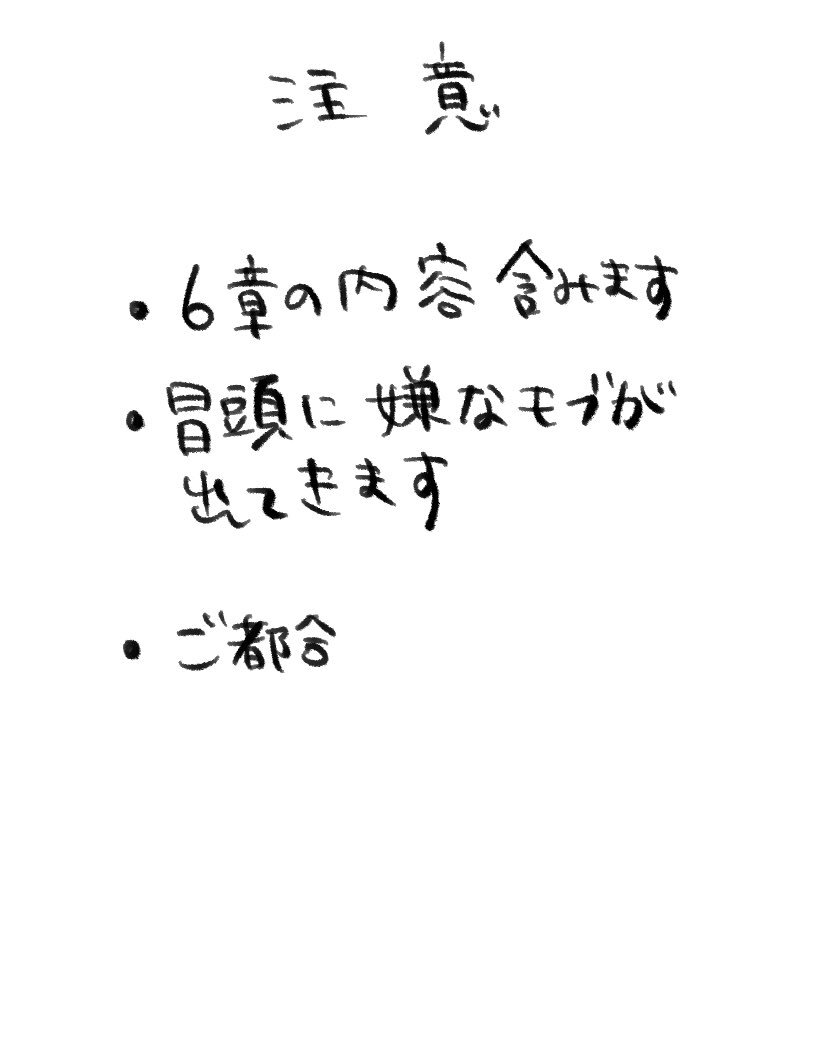 注意
・6章の内容含みます
・冒頭に嫌なモブが
出てきます
・ご都合